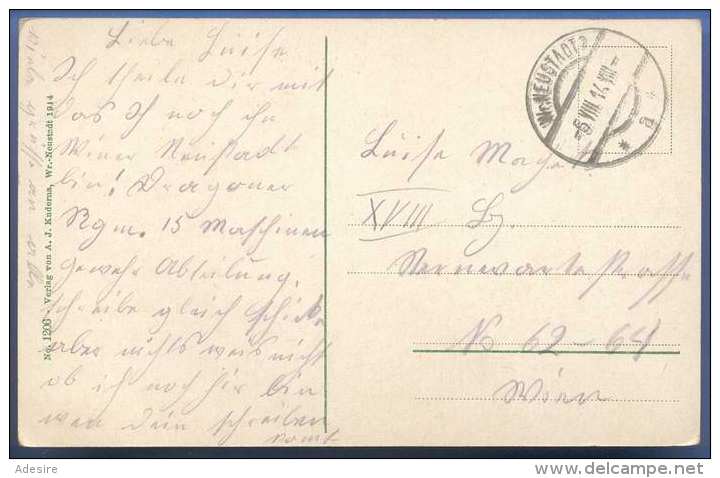 Liebe Luise
Ich theile dir mit
das Ich noch in
Wiener Neustadt
bin! Dragoner
Rgm. 15 Maschinen
Gewehr Abteilung,
schreibe gleich schicke
aber nichts weis nicht
ob ich noch hir bin
wen dein schreiben
komt
Viele grüsse an alle
No. 1206 - Verlag von A. J. Kuderna, Wr.-Neustadt 1914
Wr. NEUSTADT 2
-6 VIII 14 VIII-
* a *
Luise
XVIII Bz.
Sternwartestrasse
No 62-64
Wien
Adesire
delcampe.net